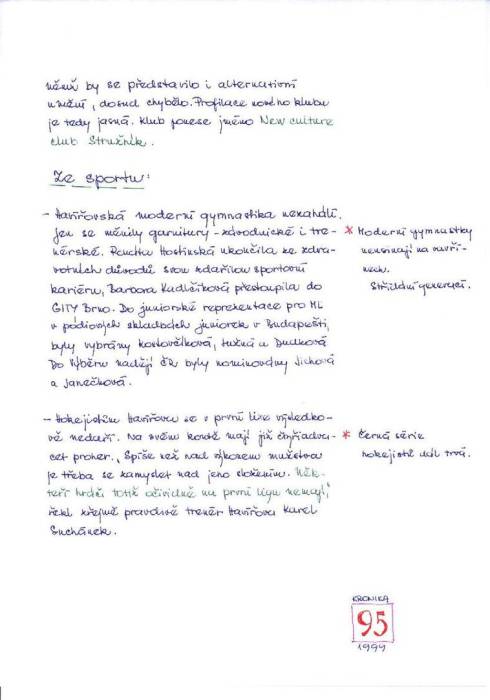 němž by se představilo i alternativní
umění, dosud chybělo. Profilace nového klubu
je tedy jasná. Klub ponese jméno New culture
club Stružník.
Ze sportu:
- Havířovská moderní gymnastika nezahálí.
Jen se měnily garnitury - závodnické i tre-
nérské. Radka Hostinská ukončila ze zdra-
votních důvodů svou zdařilou sportovní
kariéru, Barbora Kudláčková přestoupila do
GITY Brno. Do juniorské reprezentace pro ML
v pódiových skladbách juniorek v Budapešti,
byly vybrány Kostovčíková, Tužná a Dudková
Do výběru nadějí ČR byly nominovány Jichová
a Janečková.
* Moderní gymnastky
neusínají na vavří-
nech.
Střídání generací.
- Hokejistům Havířova se v první lize výsledko-
vě nedaří. Na svém kontě mají již čtyřiadva-
cet proher. „Spíše než nad výkonem mužstva
je třeba se zamyslet nad jeho složením. Něk-
teří hráči totiž očividně na první ligu nemají,"
řekl zřejmě pravdivě trenér Havířova Karel
Suchánek.
* Černá série
hokejistů dál trvá.
KRONIKA
95
1999